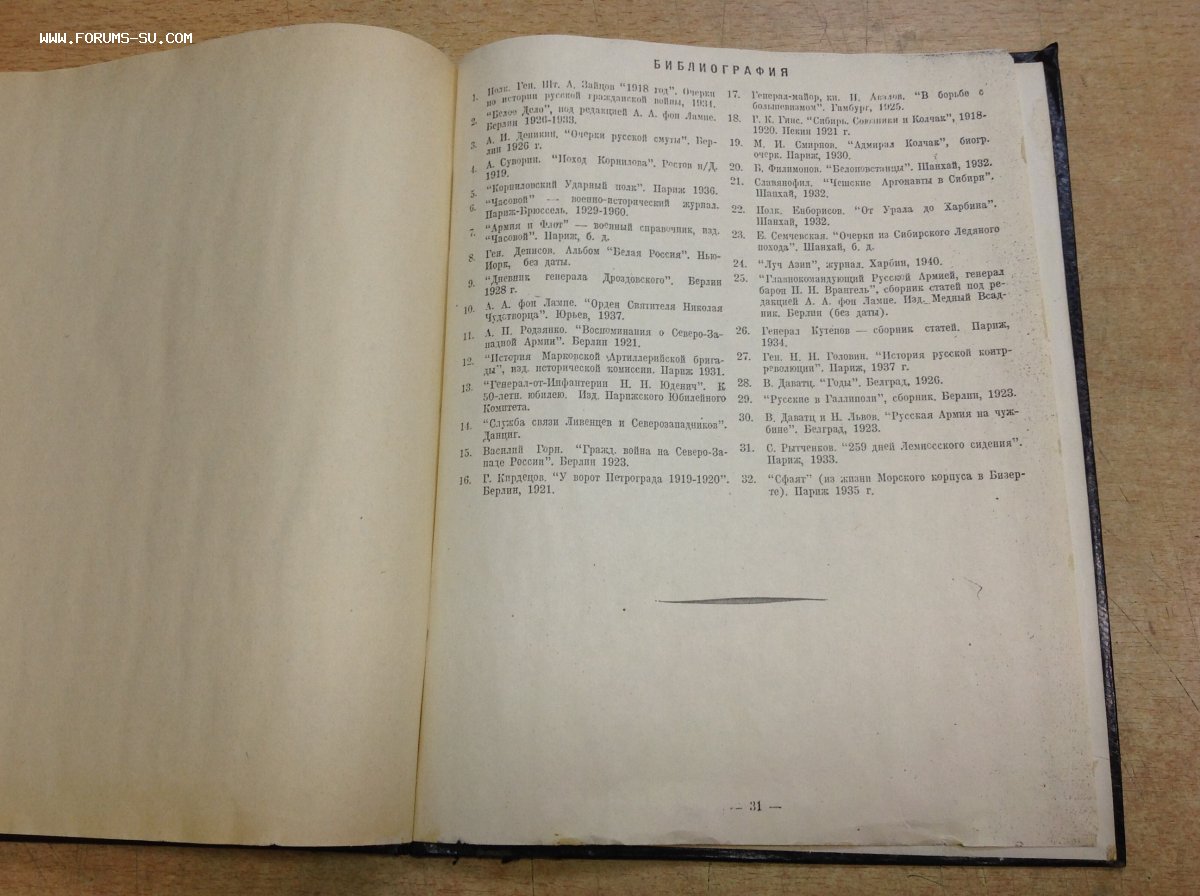 WWW.FORUMS-SU.COM
БИБЛИОГРАФИЯ
1. Полк. Ген. Шт. А. Зайцов "1918 год". Очерки
по истории русской гражданской войны, 1934.
2. "Белое Дело", под редакцией А. А. фон Лампе.
Берлин 1926-1933.
3. А. И. Деникин. "Очерки русской смуты". Бер-
лин 1926 г.
4. А. Суворин. "Поход Корнилова". Ростов н/Д.
1919.
5. "Корниловский Ударный полк". Париж 1936.
6. "Часовой" — военно-исторический журнал.
Париж-Брюссель. 1929-1960.
7. "Армия и Флот" — военный справочник, изд.
"Часовой". Париж, б. д.
8. Ген. Денисов. Альбом "Белая Россия". Нью-
Йорк, без даты.
9. "Дневник генерала Дроздовского". Берлин
1928 г.
10. А. А. фон Лампе. "Орден Святителя Николая
Чудотворца". Юрьев, 1937.
11. А. П. Родзянко. "Воспоминания о Северо-За-
падной Армии". Берлин 1921.
12. "История Марковской Артиллерийской брига-
ды", изд. исторической комиссии. Париж 1931.
13. "Генерал-от-Инфантерии Н. Н. Юденич". К
50-летн. юбилею. Изд. Парижского Юбилейного
Комитета.
14. "Служба связи Ливенцев и Северозападников".
Данциг.
15. Василий Горн. "Гражд. война на Северо-За-
паде России". Берлин 1923.
16. Г. Кирдецов. "У ворот Петрограда 1919-1920".
Берлин, 1921.
17. Генерал-майор, кн. П. Авалов. "В борьбе с
большевизмом". Гамбург, 1925.
18. Г. К. Гинс. "Сибирь. Союзники и Колчак", 1918-
1920. Пекин 1921 г.
19. М. И. Смирнов. "Адмирал Колчак", биогр.
очерк. Париж, 1930.
20. Б. Филимонов. "Белоповстанцы". Шанхай, 1932.
21. Славянофил. "Чешские Аргонавты в Сибири".
Шанхай, 1932.
22. Полк. Енборисов. "От Урала до Харбина".
Шанхай, 1932.
23. Е. Семчевская. "Очерки из Сибирского Ледяного
похода". Шанхай, б. д.
24. "Луч Азии", журнал. Харбин, 1940.
25. "Главнокомандующий Русской Армией, генерал
барон П. Н. Врангель", сборник статей под ре-
дакцией А. А. фон Лампе. Изд. Медный Всад-
ник. Берлин (без даты).
26. Генерал Кутепов — сборник статей. Париж,
1934.
27. Ген. Н. Н. Головин. "История русской контр-
революции". Париж, 1937 г.
28. В. Даватц. "Годы". Белград, 1926.
29. "Русские в Галлиполи", сборник. Берлин, 1923.
30. В. Даватц и Н. Львов. "Русская Армия на чуж-
бине". Белград, 1923.
31. С. Рытченков. "259 дней Лемносского сидения".
Париж, 1933.
32. "Сфаят" (из жизни Морского корпуса в Бизер-
те). Париж 1935 г.
— 31 —